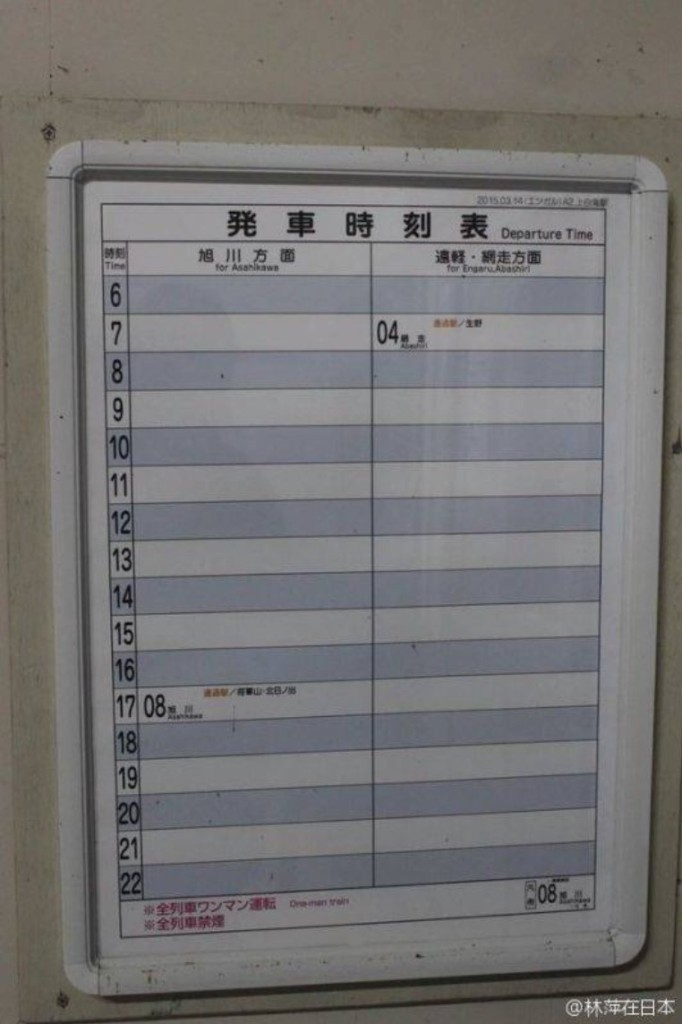 2015.03.14(エンガル)A2_上白滝駅
発車時刻表 Departure Time
時刻 Time
旭川方面 for Asahikawa
遠軽・網走方面 for Engaru,Abashiri
6
7 04 網走 Abashiri 通過駅/生野
8
9
10
11
12
13
14
15
16
17 08 旭川 Asahikawa 通過駅/将軍山・北日ノ出
18
19
20
21
22
08 旭川 Asahikawa
※全列車ワンマン運転 One-man train
※全列車禁煙
@林萍在日本